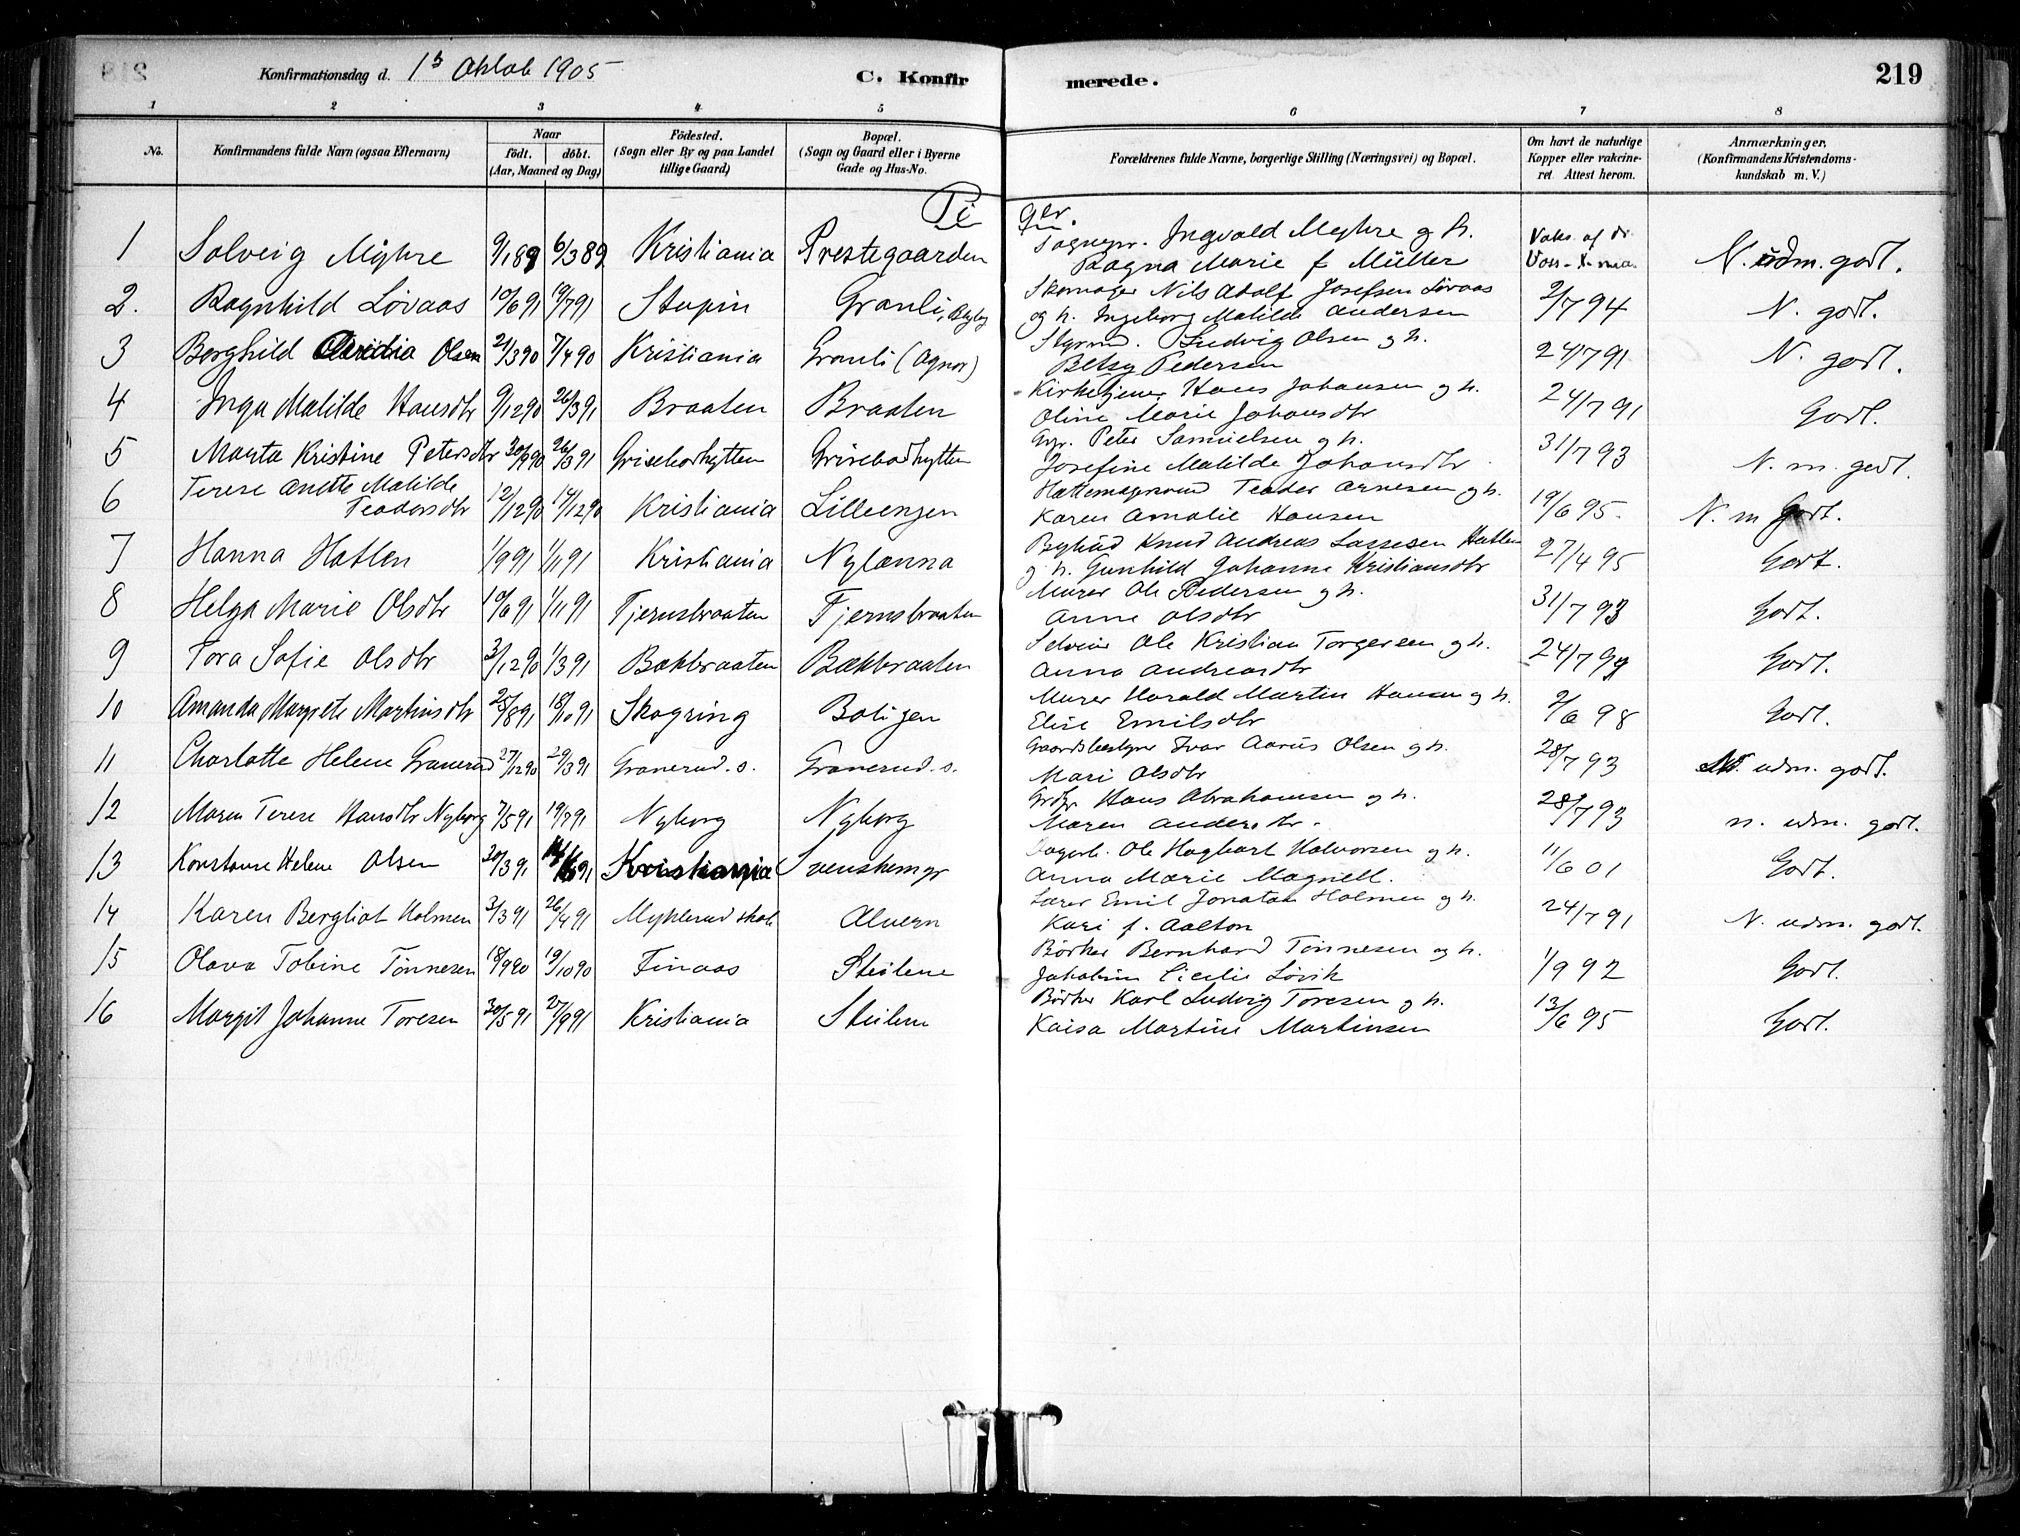 Konfirmationsdag d. 1ste Oktob 1905 C. Konfir merede. 219
1 2 3 4 5 6 7 8
No. Konfirmandens fulde Navn (ogsaa Efternavn) Naar födt. döbt. (Aar, Maaned og Dag) Födested. (Sogn eller By og paa Landet tillige Gaard) Bopæl. (Sogn og Gaard eller i Byerne Gade og Hus-No. Forældrenes fulde Navne, borgerlige Stilling (Næringsvei) og Bopæl. Om havt de naturlige Kopper eller vakcineret. Attest herom. Anmærkninger. (Konfirmandens Kristendomskundskab m. V.)
Pi ger.
1 Solveig Myhre 9/1 89 6/3 89 Kristiania Prestegaarden Sognepr. Ingvald Myhre og h. Ragna Marie f. Müller Vaks. af dr. N. udm. godt.
2. Ragnhild Løvaas 10/6 91 19/7 91 Stupin Granli, Skomager Nils Adolf Josefsen Løvaas og h. Ingeborg Matilde Andersen 2/7 94 N. godt.
3 Borghild Olsen 21/3 90 7/4 90 Kristiania Granli (Agnor) Styrmd. Ludvig Olsen og h. Betsy Pedersen 24/7 91 N. godt.
4 Inga Matilde Hansdtr 9/12 90 26/3 91 Braaten Braaten Kirketjener Hans Johansen og h. Oline Marie Johansdtr 24/7 91 Godt.
5 Marta Kristine Petersdtr 30/9 90 26/3 91 Grisebodhytten Grisebodhytten Peter Samuelsen og h. Josefine Matilde Johansdtr 31/7 93 N. m. godt.
6 Terese Anette Matilde Teodorsdtr 12/12 90 14/12 90 Kristiania Lilleengen Teodor Arnesen og h. Karen Amalie Hansen 19/6 95. N. m godt.
7 Hanna Hatlen 1/9 91 1/11 91 Kristiania Nylænna Knud Andreas Lassesen Hatlen og h. Gunhild Johanne Kristiansdtr 27/4 95 Godt.
8 Helga Marie Olsdtr 10/6 91 1/11 91 Tjernsbraaten Tjernsbraaten Murer Ole Pedersen og h. Anne Olsdtr 31/7 93 Godt.
9 Tora Sofie Olsdtr 3/12 90 1/3 91 Bækbraaten Bækbraaten Selveier Ole Kristian Torgersen og h. Anna Andreasdtr 24/7 99 Godt.
10 Amanda Margrete Martinsdtr 25/8 91 18/10 91 Skogring Boligen Murer Harald Martin Hansen og h. Elise Emilsdtr 2/6 98 Godt.
11 Charlotte Helene Granerud 27/12 90 29/3 91 Granerud. s. Granerud. s. Gaardsbestyrer Ivar Aarius Olsen og h. Mari Olsdtr 28/7 93 N. udm. godt.
12 Maren Terese Hansdtr Nyborg 7/5 91 19/7 91 Nyborg Nyborg Hans Abrahamsen og h. Maren Andersdtr. 28/7 93 n. udm. godt.
13 Konstanse Helene Olsen 20/3 91 Kristiania Svenskemyr Dagarb. Ole Hagbart Halvorsen og h. Anna Marie Magnell. 11/6 01 Godt.
14 Karen Bergliot Holmen 3/3 91 26/4 91 Myklerud skole Alvern Lærer Emil Jonatan Holmen og h. Kari f. Aalton 24/7 91 N. udm. godt.
15 Olava Tobine Tönnesen 18/9 90 19/10 90 Finaas Steilene Bödker Bernhard Tönnesen og h. Jakobine Cicilie Lövik 1/9 92 Godt.
16 Margit Johanne Toresen 30/5 91 27/9 91 Kristiania Steilene Bödker Karl Ludvig Toresen og h. Kaisa Martine Martinsen 13/6 95 Godt.